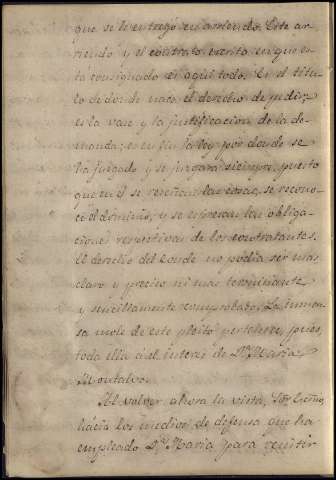 que se le entregó en arriendo. Este ar-
riendo y el contrato escrito en que es-
tá consignado es aquí todo. Es el títu-
lo de donde nace el derecho de pedir;
es la vase y la justificacion de la de-
manda; es en fin la ley por donde se
ha juzgado y se juzgará siempre, puesto
que en él se reseñan las cosas, se recono-
ce el dominio, y se espresan las obliga-
ciones respectivas de los contratantes.
El derecho del Conde no podia ser mas
claro y preciso ni mas terminante
y sencillamente comprobado. La inmen-
sa mole de este pleito pertenece, pues,
toda ella á el interes de Dª María
Montalvo.
Al volver ahora la vista, Sor Excmo,
hácia los medios de defensa que ha
empleado Dª María para resistir